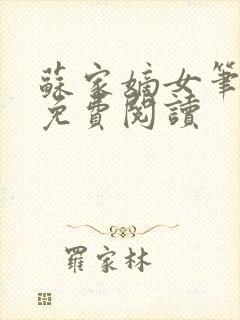 蘇家嫡女筆
免費閱讀
羅家林